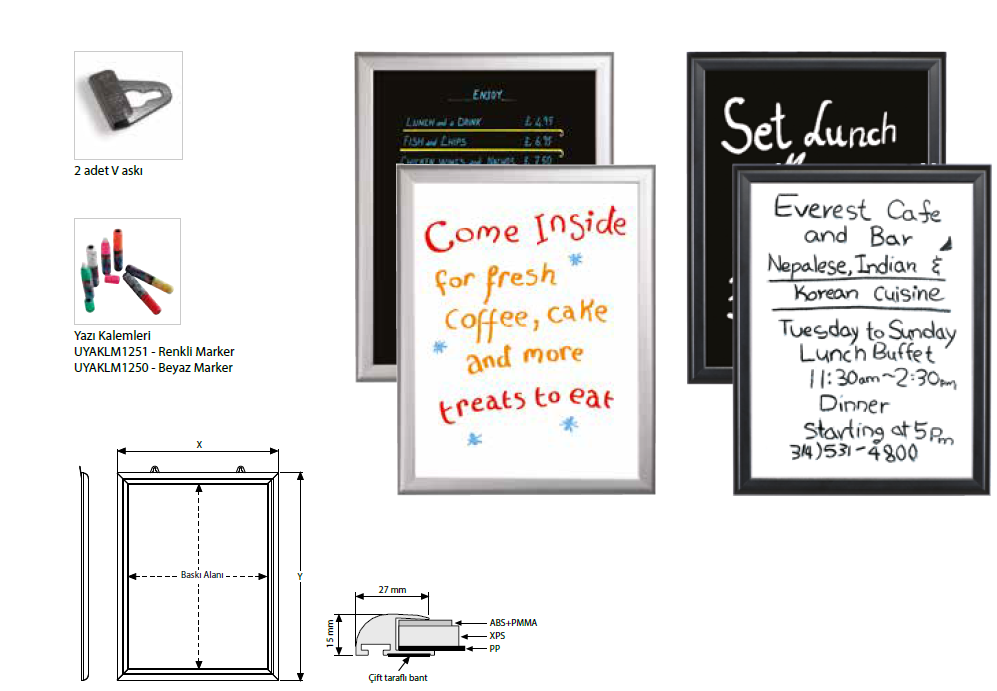 2 adet V askı
Yazı Kalemleri
UYAKLM1251 - Renkli Marker
UYAKLM1250 - Beyaz Marker
ENJOY
LUNCH and a DRINK £ 4.95
FISH and CHIPS £ 6.95
CHICKEN WINGS and NACHOS £ 7.50
Come Inside
for fresh
coffee, cake
and more
treats to eat
Set Lunch
Everest Cafe
and Bar
Nepalese, Indian &
Korean Cuisine
Tuesday to Sunday
Lunch Buffet
11:30am~2:30pm
Dinner
Starting at 5pm
314)531-4800
X
Baskı Alanı
Y
27 mm
15 mm
ABS+PMMA
XPS
PP
Çift taraflı bant